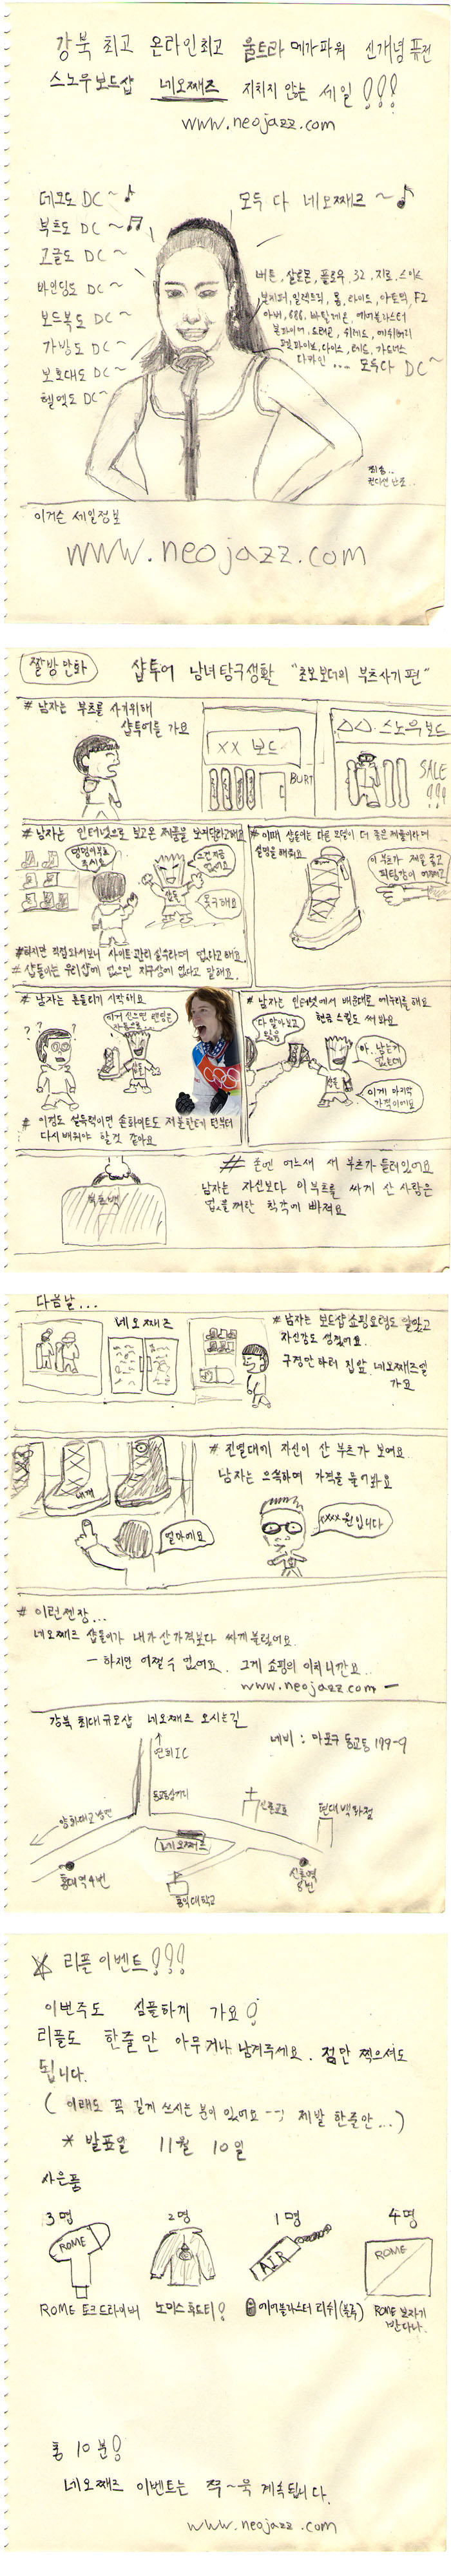 강북 최고 온라인최고 울트라 메가파워 신개념 퓨전
스노우보드샵 네오째즈 지치지 않는 세일!!!
www.neojazz.com
데크도 DC~♪
모두 다 네오째즈~♪
부츠도 DC~♬
고글도 DC~
바인딩도 DC~
보드복도 DC~
가방도 DC~
보호대도 DC~
헬멧도 DC~
버튼, 살로몬, 플로우, 32, 지로, 스미스
볼케이퍼, 일렉트릭, 롬, 라이드, 아토믹, F2
아버, 686, 바탈레온, 에어블라스터
본파이어, 드래곤,
다카인 .... 모두다 DC~
죄송..
컨디션 난조..
이거슨 세일정보
www.neojazz.com
짤방만화
샵투어 남녀탐구생활 "초보보더의 부츠사기 편"
# 남자는 부츠를 사기위해
샵투어를 가요
XX 보드
BURT
△△ 스노우보드
SALE
!!!
# 남자는 인터넷으로 보고온 제품을 보여달라고해요
주세요
그건지금
없어요
못구해요
샵돌
# 하지만 직접와서보니 사이트 관리 실수라며 없다고해요.
# 샵돌이는 우리샵에 없으면 지구상에 없다고 말해요.
# 이때 샵돌이는 다른 모델이 더 좋은 제품이라며
설명을 해줘요
이 부츠가 제일 좋고
피팅감이 어쩌고
# 남자는 흔들리기 시작해요
? ? ?
이거 신으면 랜딩은
자동으로..
# 이정도 설득력이면 숀화이트도 저분한테 턴부터
다시 배워야 할것 같아요
# 남자는 인터넷에서 배운대로 에누리를 해요
현금 스킬도 써봐요
다 알아보고
왔음
아. 남는거
없는데
이게 마지막
가격이에요
부츠백
# 손엔 어느새 새 부츠가 들려있어요
남자는 자신보다 이 부츠를 싸게 산 사람은
없을꺼란 착각에 빠져요
다음날...
네오째즈
# 남자는 보드샵 쇼핑요령도 알았고
자신감도 생겼어요.
구경만하러 집앞 네오째즈엘
가요
내꺼
# 진열대에 자신이 산 부츠가 보여요.
남자는 으쓱하며 가격을 물어봐요
얼마에요
XXXX원입니다
# 이런젠장...
네오째즈 샵돌이가 내가산가격보다 싸게 불렀어요.
- 하지만 어쩔수 없어요. 그게 쇼핑의 이치니깐요..
www.neojazz.com -
강북 최대규모샵 네오째즈 오시는길
네비 : 마포구 동교동 199-9
연희IC
동교동삼거리
양화대교방면
신촌교회
현대백화점
네오째즈
홍대역4번
홍익대학교
신촌역
8번
리플이벤트!!!
이번주도 심플하게 가요!
리플도 한줄만 아무거나 남겨주세요. 점만 찍으셔도
됩니다.
( 이래도 꼭 길게 쓰시는 분이 있어요 --; 제발 한줄만...)
* 발표일 11월 10일
사은품
3명
2명
1명
4명
ROME
AIR
ROME
ROME 토크드라이버
노미스 후드티!
에어블라스터 리쉬(블루)
ROME 보자기
반다나.
총 10분!
네오째즈 이벤트는 쭈~욱 계속됩니다.
www.neojazz.com